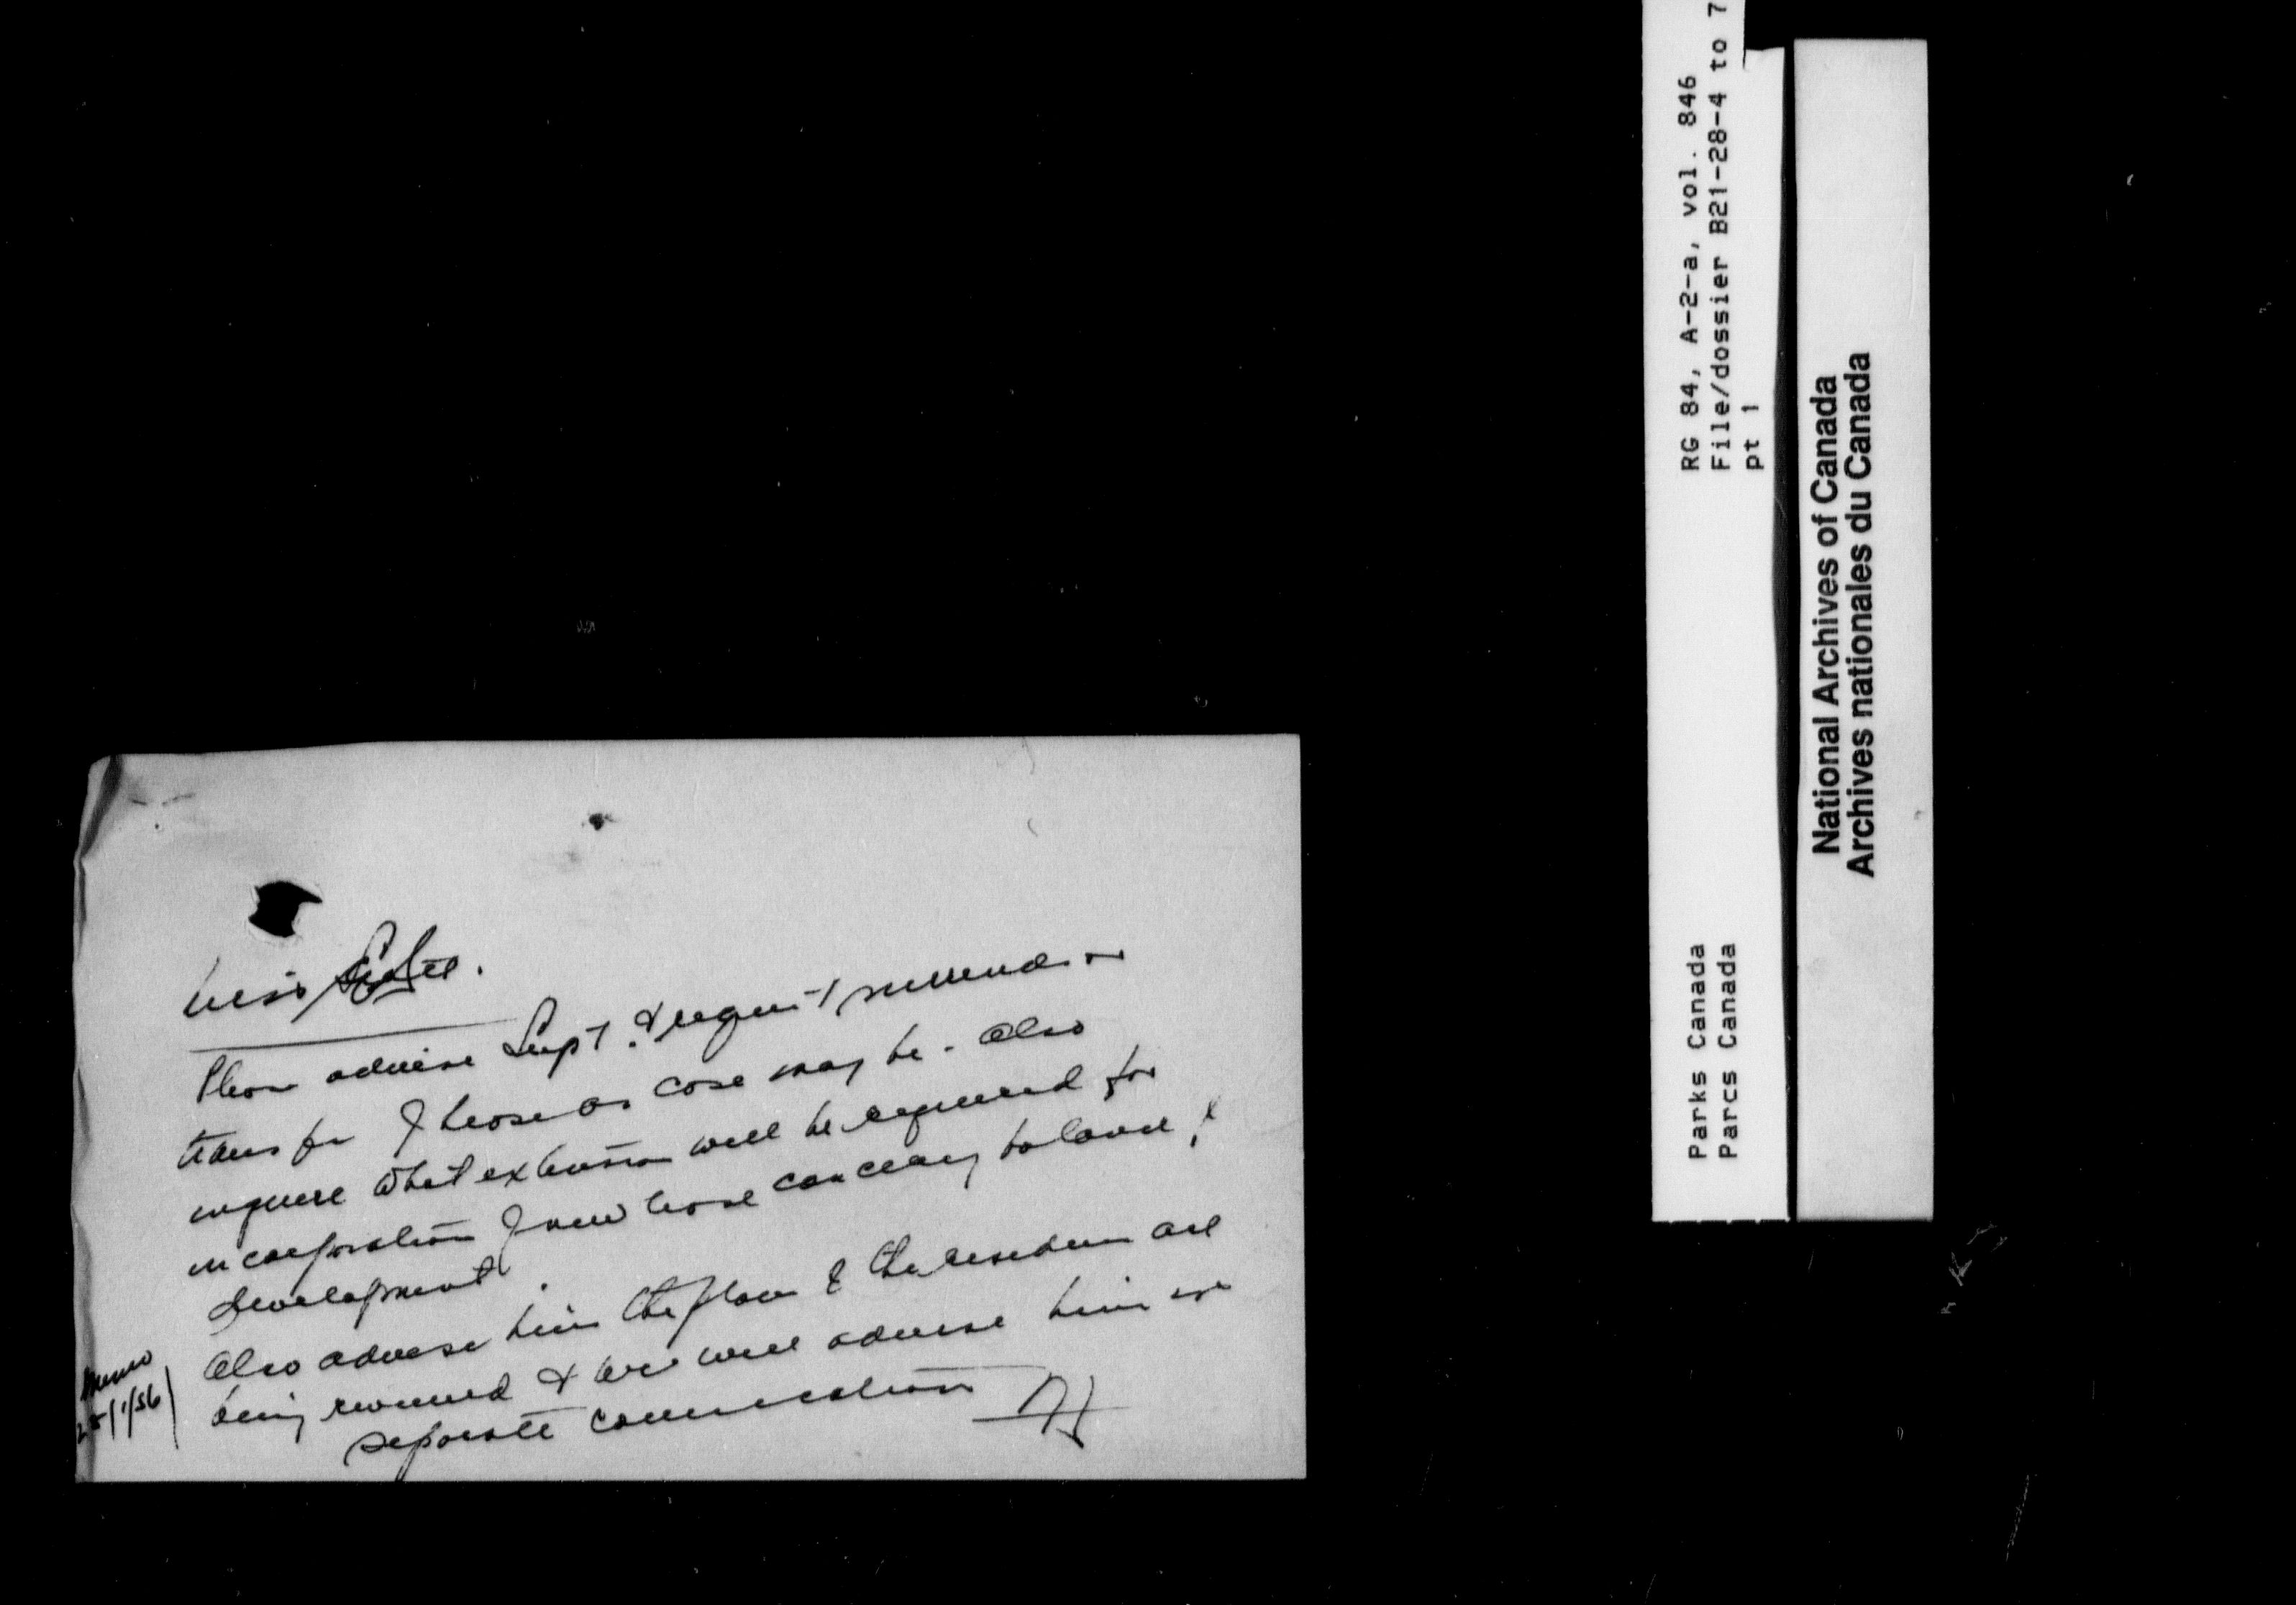 Miss
Please advise Supt. & request surrender or
transfer of lease as case may be. Also
inquire what extension will be required for
incorporation of new lease concerning balance of
development.
Also advise him the plan of the residence are
being reviewed & we will advise him in
separate communication
Memo
25/1/56
RG 84, A-2-a, vol. 846
File/dossier B21-28-4 to 7
pt 1
Parks Canada
Parcs Canada
National Archives of Canada
Archives nationales du Canada